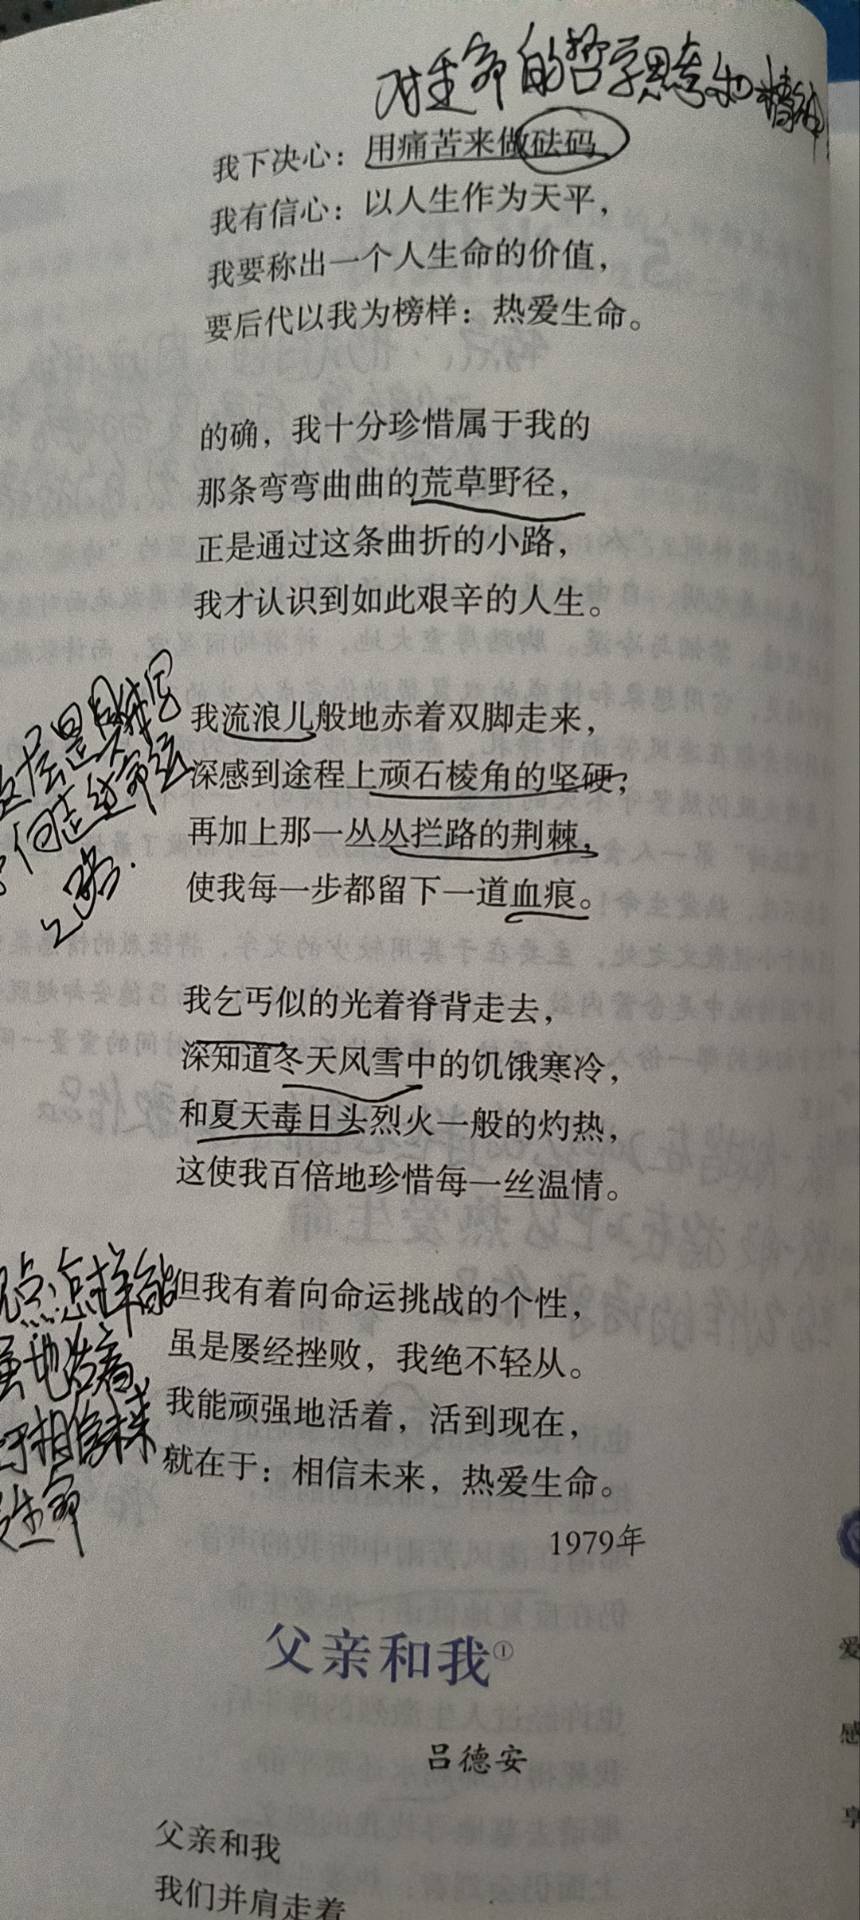 对生命的哲学思考和精神
我下决心：用痛苦来做砝码，
我有信心：以人生作为天平，
我要称出一个人生命的价值，
要后代以我为榜样：热爱生命。
的确，我十分珍惜属于我的
那条弯弯曲曲的荒草野径，
正是通过这条曲折的小路，
我才认识到如此艰辛的人生。
我流浪儿般地赤着双脚走来，
深感到途程上顽石棱角的坚硬；
再加上那一丛丛拦路的荆棘，
使我每一步都留下一道血痕。
我乞丐似的光着脊背走去，
深知道冬天风雪中的饥饿寒冷，
和夏天毒日头烈火一般的灼热，
这使我百倍地珍惜每一丝温情。
点：怎样能
强地活着
于相信未来
生命
但我有着向命运挑战的个性，
虽是屡经挫败，我绝不轻从。
我能顽强地活着，活到现在，
就在于：相信未来，热爱生命。
1979年
父亲和我①
吕德安
父亲和我
我们并肩走着
爱
感
享